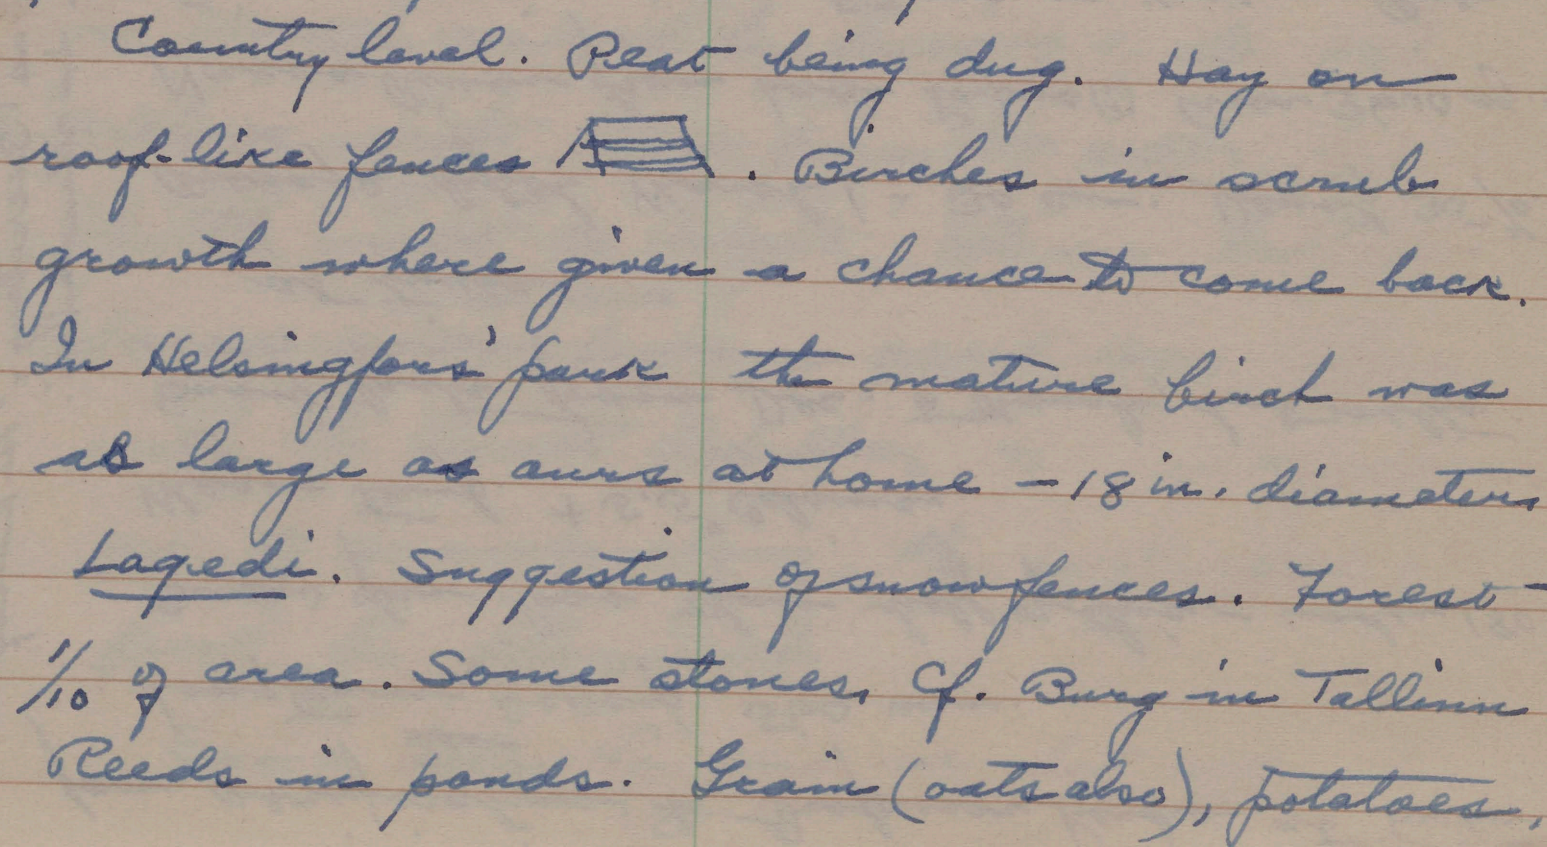 Country level. Peat being dug. Hay on
roof-like fences . Birches in scrub
growth where given a chance to come back.
In Helsingfors' park the mature birch was
as large as ours at home - 18 in. diameters
Lagedi. Suggestion of snow fences. Forest -
1/10 of area. Some stones. Cf. Burg in Tallinn
Reeds in ponds. Grain (oats also), potatoes,